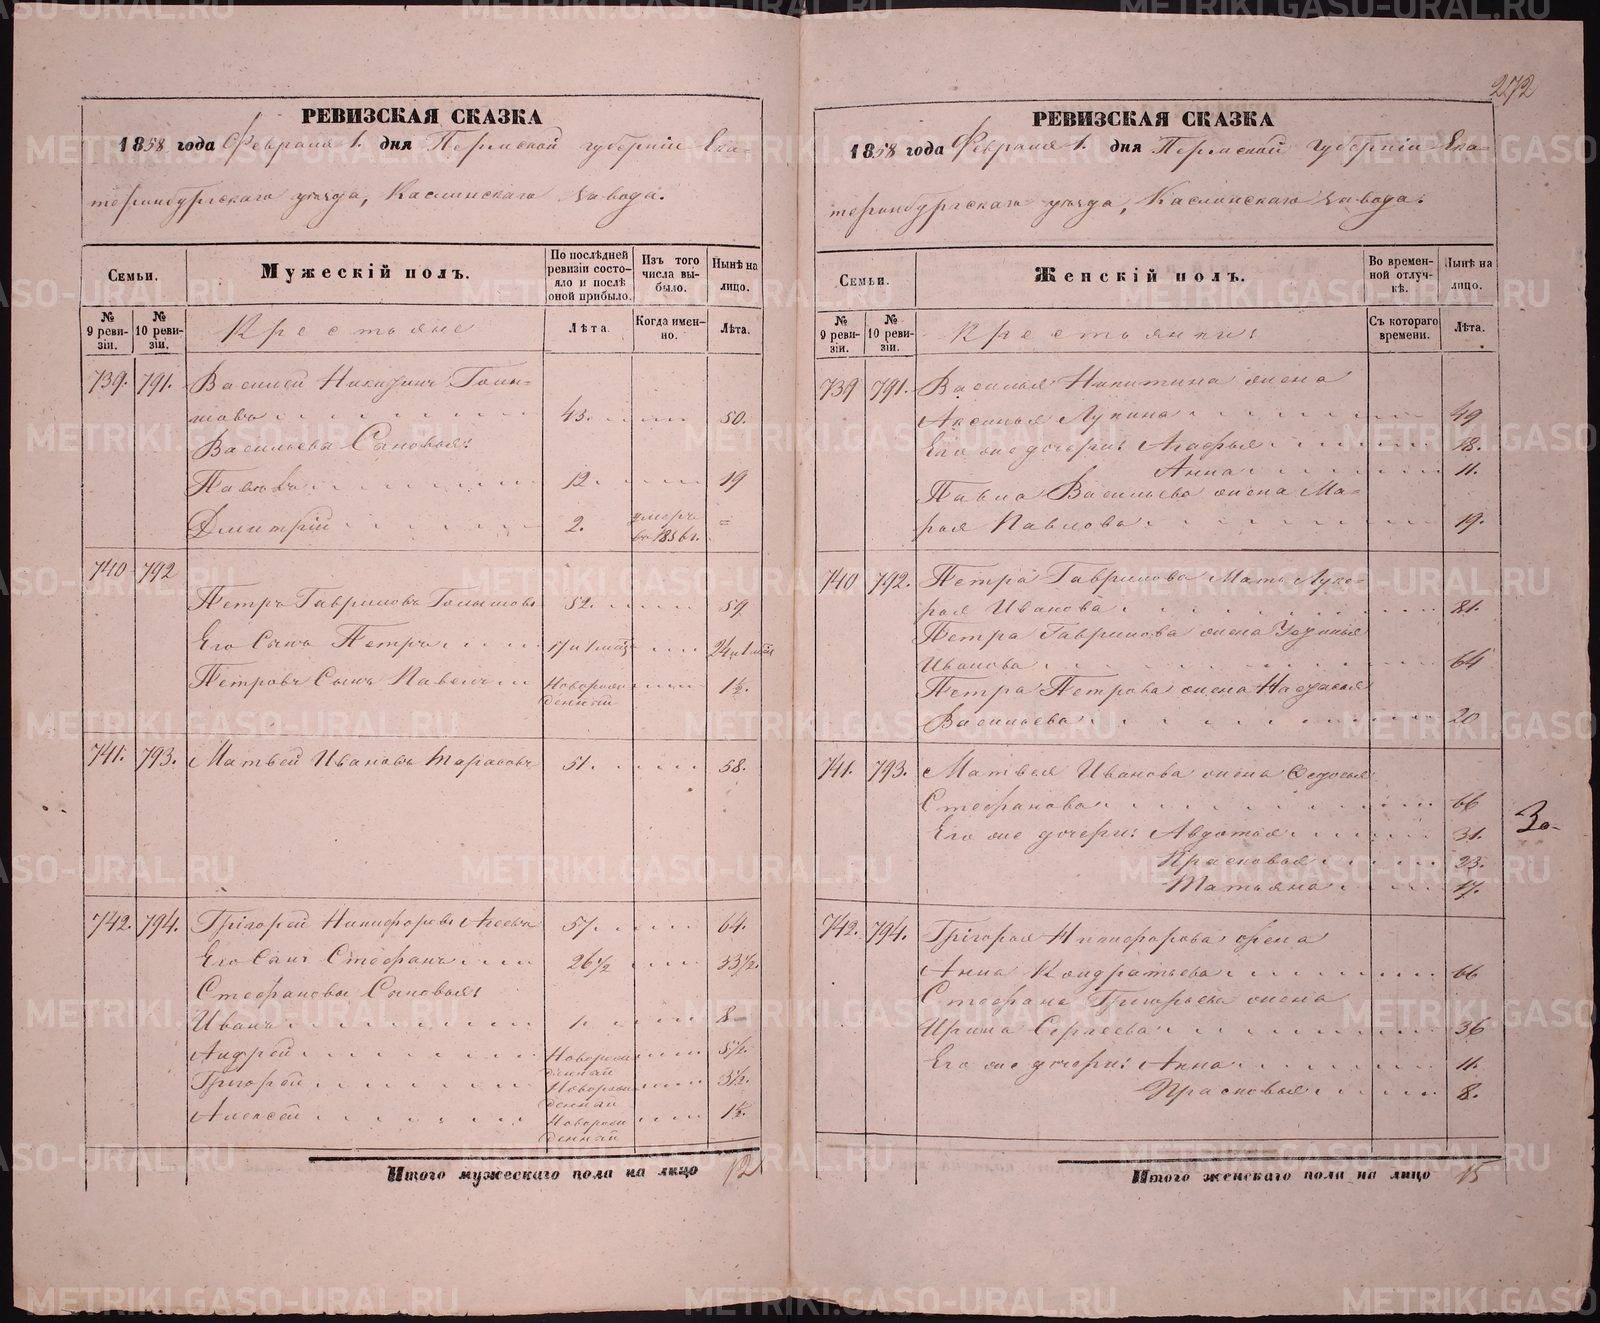 272
РЕВИЗСКАЯ СКАЗКА
1858 года Февраля 1. дня Пермской губерніи Ека-
теринбургскаго уѣзда, Каслинскаго завода.
Семьи.
Мужескій полъ.
По послѣдней ревизіи состо-яло и послѣ оной прибыло.
Изъ того числа вы-было.
Нынѣ на лицо.
№ 9 реви-зіи.
№ 10 реви-зіи.
Крестьяне
Лѣта.
Когда имен-но.
Лѣта.
739. 791. Василей Никитинъ
43. 50.
Васильевы Сыновья:
Павелъ 12. 19
Дмитрій 2. умеръ въ 1856 г. =
740 792
Петръ Гавриловъ 52. 59
Его Сынъ Петръ 17 и 1 мѣс 24 и 1 мѣс
Петровъ Сынъ Павелъ Новорож-денный 1½.
741. 793. Матвей Ивановъ Тарасовъ 51. 58.
742. 794. Григорей Никифоровъ Агеевъ 57. 64.
Его Сынъ Стефанъ 26½ 33½.
Стефановы Сыновья:
Иванъ 1. 8
Андрей Новорож-денный 5½.
Григорей Новорож-денный 3½.
Алексей Новорож-денный 1½.
Итого мужескаго пола на лицо 12
РЕВИЗСКАЯ СКАЗКА
1858 года Февраля 1. дня Пермской губерніи Ека-
теринбургскаго уѣзда, Каслинскаго завода.
Семьи.
Женскій полъ.
Во времен-ной отлуч-кѣ.
Нынѣ на лицо.
№ 9 реви-зіи.
№ 10 реви-зіи.
Крестьянки:
Съ котораго времени.
Лѣта.
739 791. Василья Никитина жена
Аксинья Лупина 49
Его же дочери: Агафья 18.
Анна 11.
Павла Васильева жена Ма-
рья Павлова 19.
740 792. Петра Гаврилова Мать Луке-
рья Иванова 81.
Петра Гаврилова жена
Иванова 64
Петра Петрова жена Настасья
Васильева 20
741. 793. Матвея Иванова жена Федосья
Стефанова 66
Его же дочери: Авдотья 31.
Прасковья 23.
Татьяна 17.
742. 794. Григорья Никифорова жена
Анна Кондратьева 66
Стефана Григорьева жена
Ирина Сергеева 36
Его же дочери: Анна 11.
Прасковья 8.
Итого женскаго пола на лицо 15
METRIKI.GASO-URAL.RU